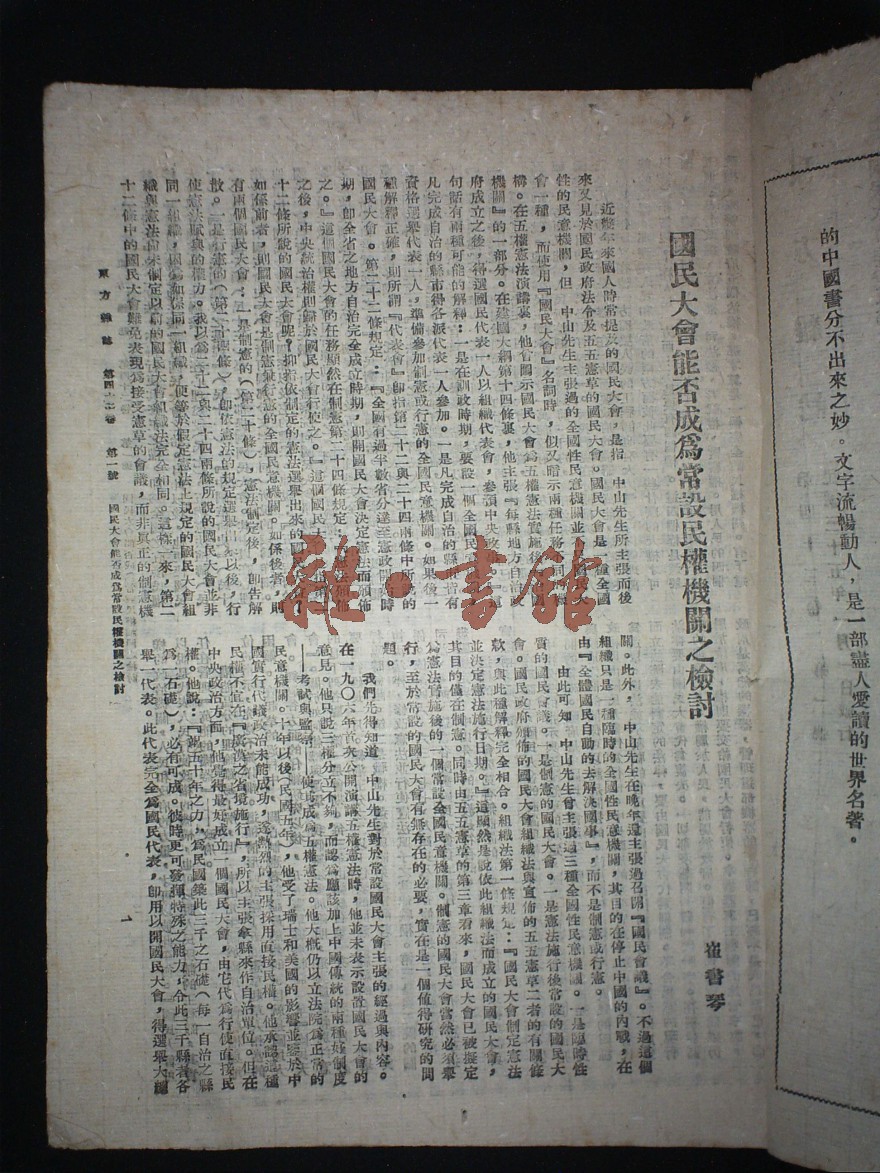 的中國書分不出來之妙。文字流暢動人，是一部盡人愛讀的世界名著。
國民大會能否成爲常設民權機關之檢討
崔書琴
近幾年來國人時常提及的國民大會，是指　中山先生所主張而後
來又見於國民政府法令及五五憲草的國民大會。國民大會是一種全國
性的民意機關，但　中山先生主張過的全國性民意機關並
會一種，而使用『國民大會』名詞時，似又暗示兩種任務
構。在五權憲法演講裏，他曾圖示國民大會爲五權憲法實施後
機關』的一部分。在建國大綱第十四條裏，他主張『每縣地方自治政
府成立之後，得選國民代表一人以組織代表會，參預中央政
句話有兩種可能的解釋：一是在訓政時期，要設一個全國民
凡完成自治的縣市得各派代表一人參加。一是凡完成自治的縣市皆有
資格選舉代表一人，準備參加制憲或行憲的全國民意機關。如果後一
種解釋正確，則所謂『代表會』卽指第二十二與二十四兩條中所說的
國民大會。第二十三條規定：『全國有過半數省分達至憲政開始時
期，卽全省之地方自治完全成立時期，則開國民大會決定憲法而頒佈
之。』這個國民大會的任務顯然在制憲第二十四條規定：
之後，中央統治權則歸於國民大會行使之。』這個國民大
十三條所說的國民大會呢？抑指依制定的憲法選舉出來的國
如係前者，則國民大會是制憲兼行憲的全國民意機關。如係後者，則
有兩個國民大會：一是制憲的（第二十三條），憲法制定後，卽告解
散。一是行憲的（第二十四條），卽依憲法的規定選舉出來以後，行
使憲法賦與的權力。我以爲二十三與二十四兩條所說的國民大會並非
同一組織，因爲如係同一組織，便等於假定憲法上規定的國民大會組
織與憲法尚未制定以前的國民大會組織法完全相同。這樣一來，第二
十三條中的國民大會難免表現爲接受憲草的會議，而非眞正的制憲機
關。此外，　中山先生在晚年還主張過召開『國民會議』。不過這個
組織只是一種臨時的全國性民意機關，其目的在停止中國的內戰，在
由『全體國民自動的去解決國事』，而不是制憲或行憲。
由此可知　中山先生曾主張過三種全國性民意機關。一是臨時性
質的國民會議。一是制憲的國民大會。一是憲法施行後常設的國民大
會。國民政府頒佈的國民大會組織法與宣佈的五五憲草二者的有關條
款，與此種解釋完全相合。組織法第一條規定：『國民大會制定憲法
並決定憲法施行日期。』這顯然是說依此組織法而成立的國民大會，
其目的僅在制憲。同時由五五憲草的第三章看來，國民大會已被擬定
爲憲法實施後的一個常設全國民意機關。制憲的國民大會當然必須舉
行，至於常設的國民大會有無存在的必要，實在是一個值得研究的問
題。
我們先得知道　中山先生對於常設國民大會主張的經過與內容。
在一九〇六年首次公開演講五權憲法時，他並未表示設置國民大會的
意見。他只說三權分立不夠，而認爲應該加上中國傳統的兩種好制度
——考試與監察——使其成爲五權憲法。他大槪仍以立法院爲正常的
民意機關。十年以後（民國五年），他受了瑞士和美國的影響並鑒於中
國實行代議政治未能成功，遂熱烈的主張採用直接民權。他承認這種
民權不宜在『廣漠之省境施行』，所以主張拿縣來作自治單位。但在
中央政治方面，他覺得最好成立一個國民大會，由它代爲行使直接民
權。他說：『雖五十年之力，爲民國築此三千之石礎（每一自治之縣
爲一石礎），必有可成。彼時更可發揮特殊之能力，合此三千縣者各
舉一代表。此代表完全爲國民代表，卽用以開國民大會，得選舉大總
東方雜誌　第四十三卷　第一號　國民大會能否成爲常設民權機關之檢討
一
雜·書館